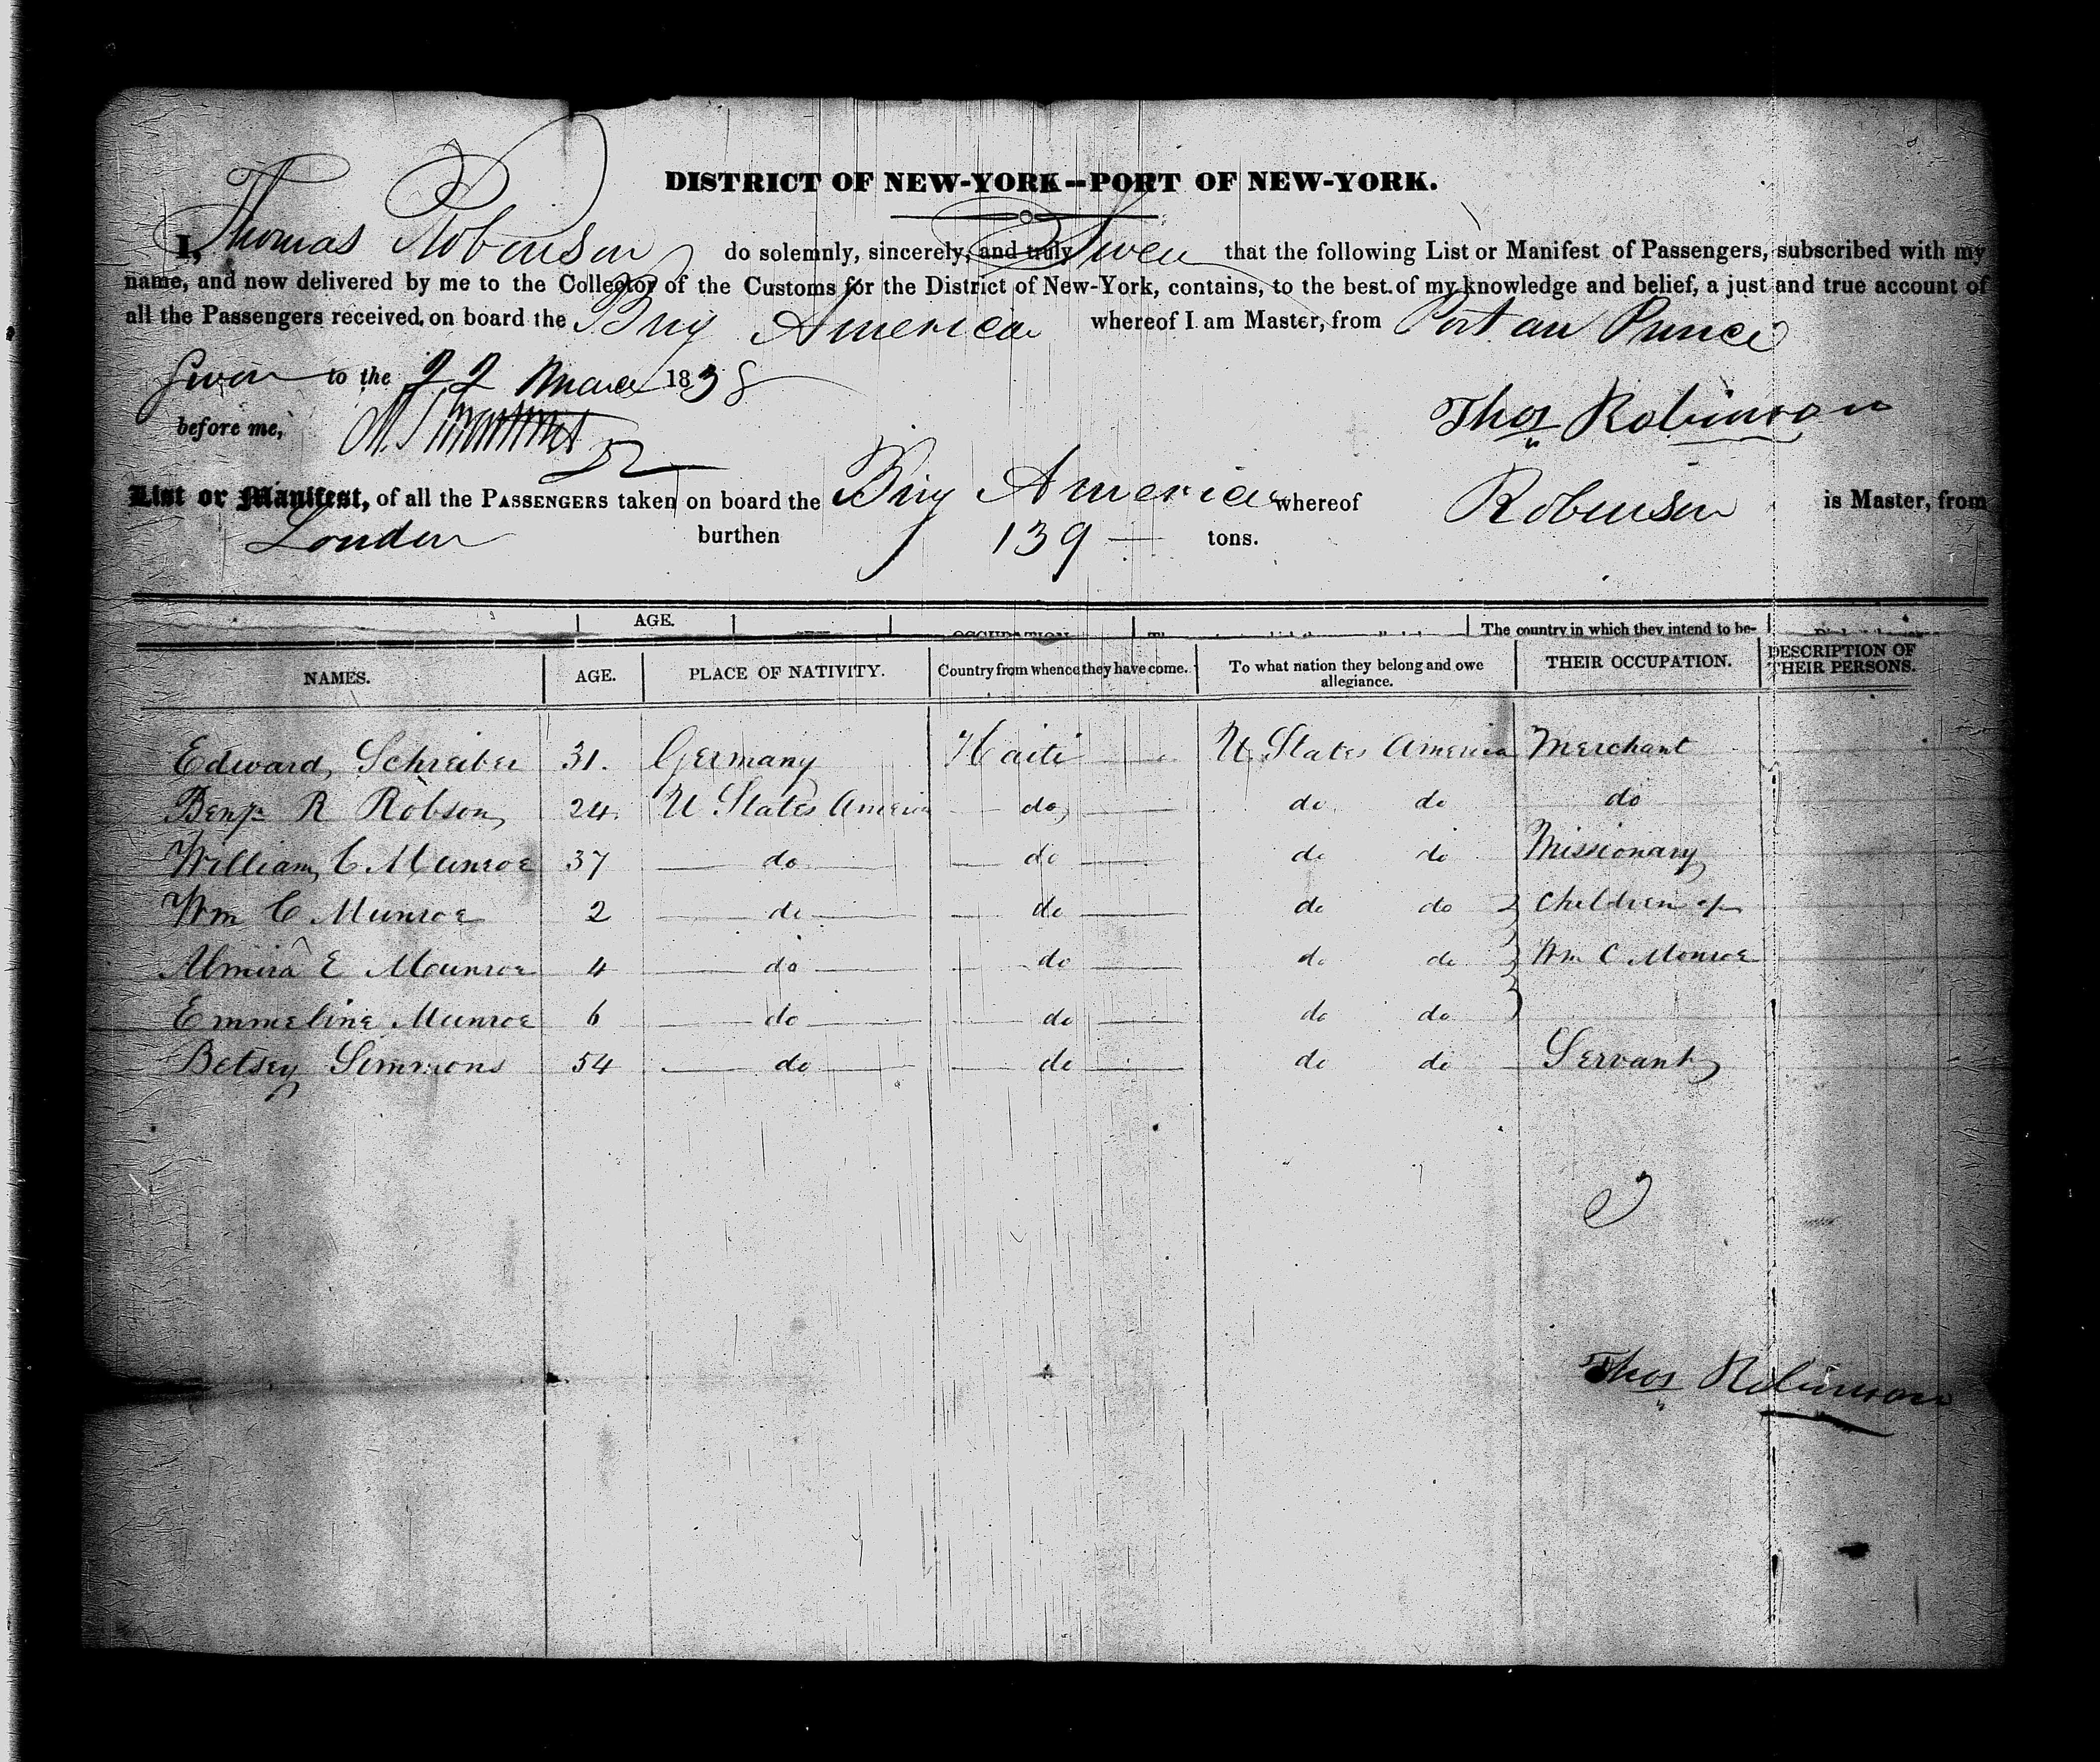 DISTRICT OF NEW-YORK--PORT OF NEW-YORK.
I, Thomas Robinson do solemnly, sincerely, and truly Swear that the following List or Manifest of Passengers, subscribed with my
name, and now delivered by me to the Collector of the Customs for the District of New-York, contains, to the best of my knowledge and belief, a just and true account of
all the Passengers received on board the Brig America whereof I am Master, from Port au Prince
Sworn to the 22 March 1838
before me,
Thos Robinson
List or Manifest, of all the PASSENGERS taken on board the Brig America whereof Robinson is Master, from
London burthen 139 tons.
AGE. OCCUPATION The country in which they intend to be-
NAMES. AGE. PLACE OF NATIVITY. Country from whence they have come. To what nation they belong and owe allegiance. THEIR OCCUPATION. DESCRIPTION OF THEIR PERSONS.
Edward Schreiber 31. Germany Haiti U. States America Merchant
Benjn R Robson 24. U States America do do do do
William C. Munroe 37 do do do do Missionary
Wm C Munroe 2 do do do do Children of
Almira E Munroe 4 do do do do Wm C Monroe
Emmeline Munroe 6 do do do do
Betsey Simmons 54 do do do do Servant
Thos Robinson